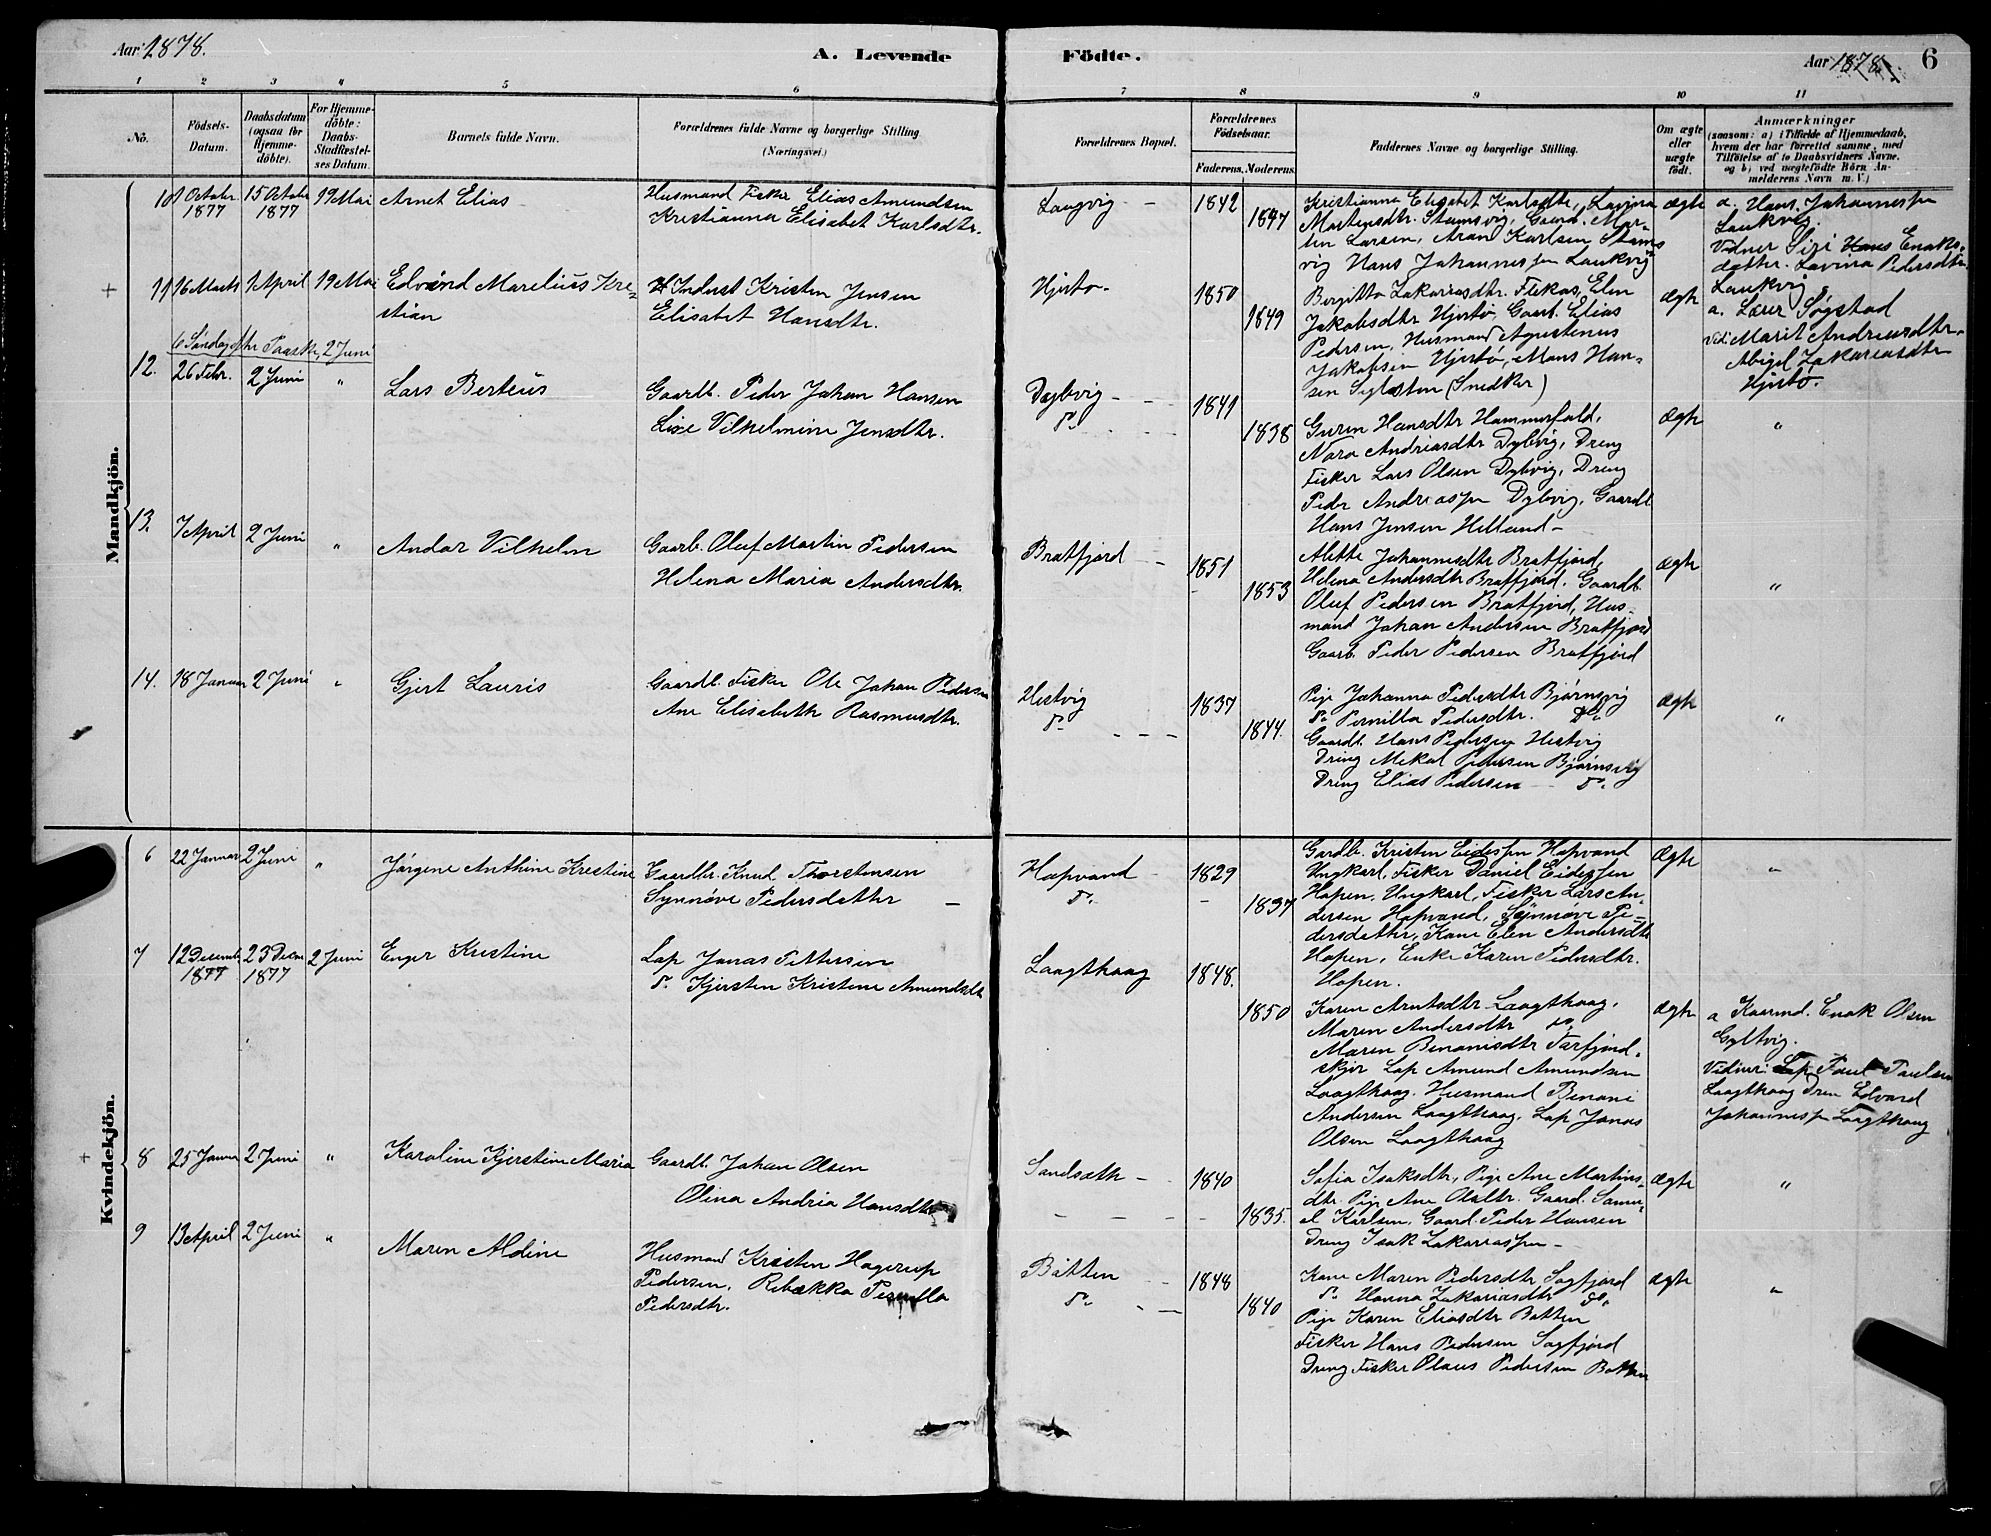 Aar 1878.
A. Levende Födte.
Aar 1878.
6
1 2 3 4 5 6 7 8 9 10 11
No.
Födsels-Datum.
Daabsdatum (ogsaa for Hjemme-döbte).
For Hjemme-döbte: Daabs-Stadfæstel-ses Datum.
Barnets fulde Navn.
Forældrenes fulde Navne og borgerlige Stilling.
(Næringsvei.)
Forældrenes Bopæl.
Forældrenes Födselsaar.
Faderens. Moderens.
Faddernes Navne og borgerlige Stilling.
Om ægte eller uægte födt.
Anmærkninger
(saasom: a) i Tilfælde af Hjemmedaab, hvem der har forrettet samme, med Tilföielse af to Daabsvidners Navne, og b) ved uægtefödte Börn An-melderens Navn m. V.)
Mandkjön.
10 1 October 1877 15 October 1877 19 Mai Arnet Elias
Husmand Fisker Elias Amundsen
Kristianna Elisabet Karlsdtr.
Laugvig 1842 1847
Kristianna Elisabet Karlsdtr, Lavina
Martensdtr. Stamsvig, Gaardb. Mar-
tin Larsen, Aran Karlsen Stams
vig Hans Johannessen Laukvig
ægte
a. Hans Johannessen
Laukvig.
Vidner Siri Hans Enoks-
datter. Lavina Pedersdtr
Laukvig
11 16 Marts 1 April 19 Mai Edvard Marelius Kri-
stian
Inderst Kristen Jensen
Elisabet Hansdtr.
Hjertø 1850 1849
Birgitta Zakariasdtr. Flekas, Elen
Jakobsdtr Hjertø, Gaardb. Elias
Pedersen, Husmand Agustenus
Jakobsen Hjertø, Mons Han-
sen (Snedker)
ægte
a. Lærer Søgstad
Vid: Marit Andreasdtr
Abigel Zakariasdtr
Hjertø.
6 Søndag efter Paaske, 2 Juni
12. 26 Febr. 2 Juni " Lars Berteus
Gaardb. Peder Johan Hansen
Lise Vilhelmine Jensdtr.
Dybvig 1841
D° 1838
Guren Hansdtr Hammerfald,
Nora Andriasdtr Dybvig, Dreng
Fisker Lars Olsen Dybvig, Dreng
Peder Andreassen Dybvig, Gaardb
Hans Jensen Helland
ægte "
13. 7 April 2 Juni " Andor Vilhelm
Gaarb. Oluf Martin Pedersen
Helena Maria Andersdtr.
Bratfjord 1851 1853
Alette Johannesdtr Bratfjord,
Helena Andersdtr Bratfjord. Gaardb.
Oluf Pedersen Bratfjord, Hus-
mand Johan Andersen Bratfjord
Gaarb. Peder Pedersen Bratfjord
ægte "
14. 18 Januar 2 Juni " Gjert Lauris
Gaardb. Fisker Ole Johan Pedersen
Ane Elisabeth Rasmusdtr.
Hestvig 1837
D° 1844.
Pige Johanna Pedersdtr Bjørnsvig
D° Pernilla Pedersdtr. D°
Gaardb. Hans Pedersen Hestvig
Dreng Mekal Pedersen Bjørnsvig
Dreng Elias Pedersen D°
ægte "
Kvindekjön.
6 22 Januar 2 Juni " Jørgine Anthine Kristine
Gaardbr. Knud Thorstensen
Synnøve Pedersdatter
Hopvand 1829
D° 1837
Gardb. Kristen Eidessen Hopvand
Ungkarl, Fisker Daniel Eidessen
Hopen, Ungkarl, Fisker Lars An-
dersen Hopvand, Synnøve Pe-
dersdatter, Kone Elen Andersdtr
Hopen, Enke Karen Pedersdtr.
Hopen.
ægte "
7 12 Decemb 1877 23 Decem 1877 2 Juni Enger Kristine
Lap Jonas Pettersen
D° Kjersten Kristine Amundsdtr
Laagthaag 1848. 1850
Karen Arntsdtr Laagthaag.
Maren Andersdtr D°
Maren Benonisdtr Tarfjord-
skjer Lap Amund Amundsen
Laagthaag. Husmand Benoni
Andersen Laagthaag. Lap Jonas
Olsen Laagthaag
ægte
a Enok Olsen
Gyltvig.
Vidner: Lap Paul Paulsen
Laagthaag Dren Edvard
Johannessen Laagthaag
8 25 Januar 2 Juni " Karoline Kjerstine Maria
Gaardb. Johan Olsen
Olina Andria Hansdtr
Sandsæth 1840 1835.
Sofia Isaksdtr, Pige Ane Martins-
dtr. Pige Ane Olsdtr. Gaard. Samu-
el Karlsen. Gaard. Peder Hansen
Dreng Isak Zakariassen
ægte "
9 13 April 2 Juni " Maren Aldine
Husmand Kristen Hagerup
Pedersen, Rebækka Pernilla
Pedersdtr.
Båtten 1848
D° 1840
Kone Maren Pedersdtr Sagfjord
D° Hanna Zakariasdtr D°
Pige Karen Eliasdtr Botten
Fisker Hans Pedersen Sagfjord
Dreng Fisker Olaus Pedersen Botten
ægte "